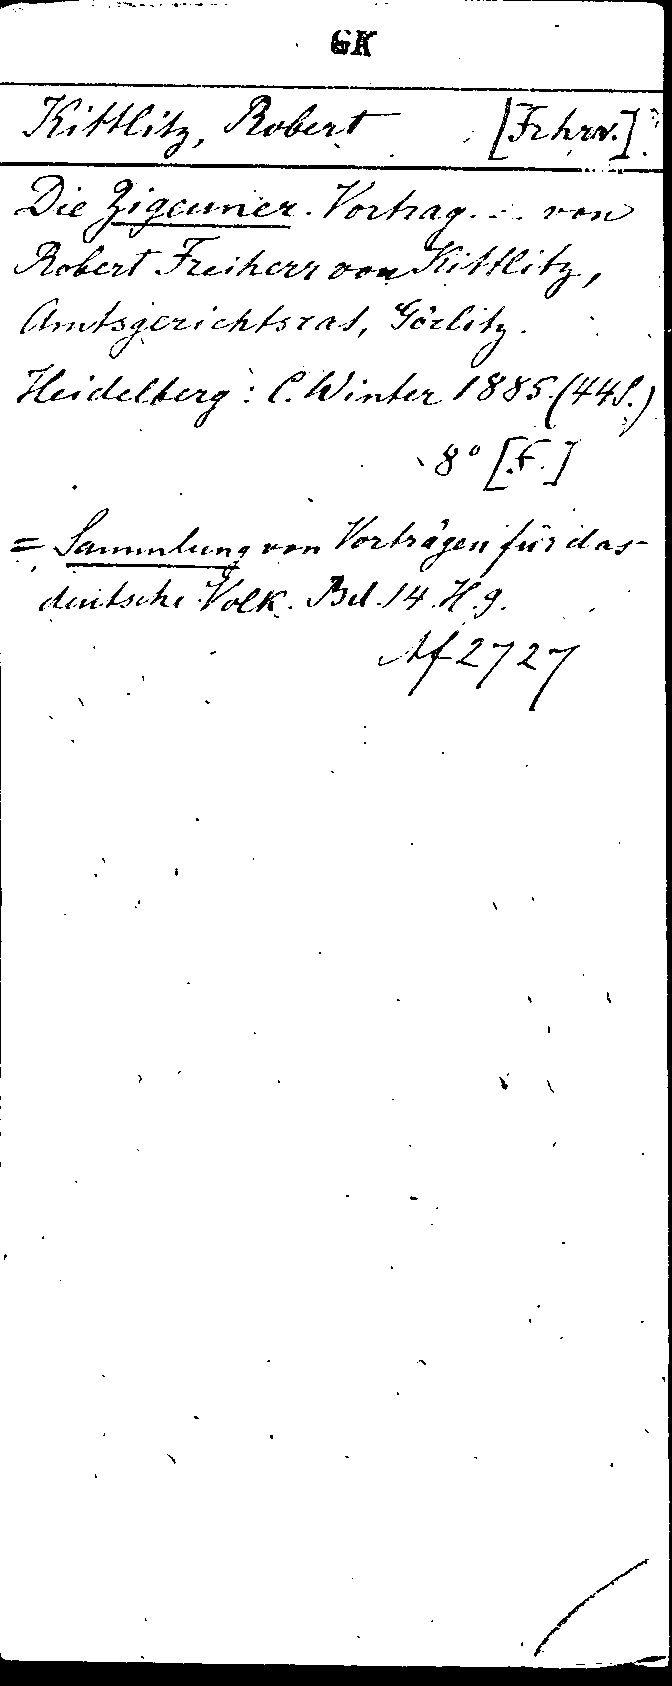 GK
Kittlitz, Robert [Frhr v.]
Die Zigeuner. Vortrag ... von
Robert Freiherr von Kittlitz,
Amtsgerichtsrat, Görlitz.
Heidelberg: C. Winter 1885. (44 S.)
8° [F.]
= Sammlung von Vorträgen für das
deutsche Volk. Bd. 14. H. 9.
Af 2727